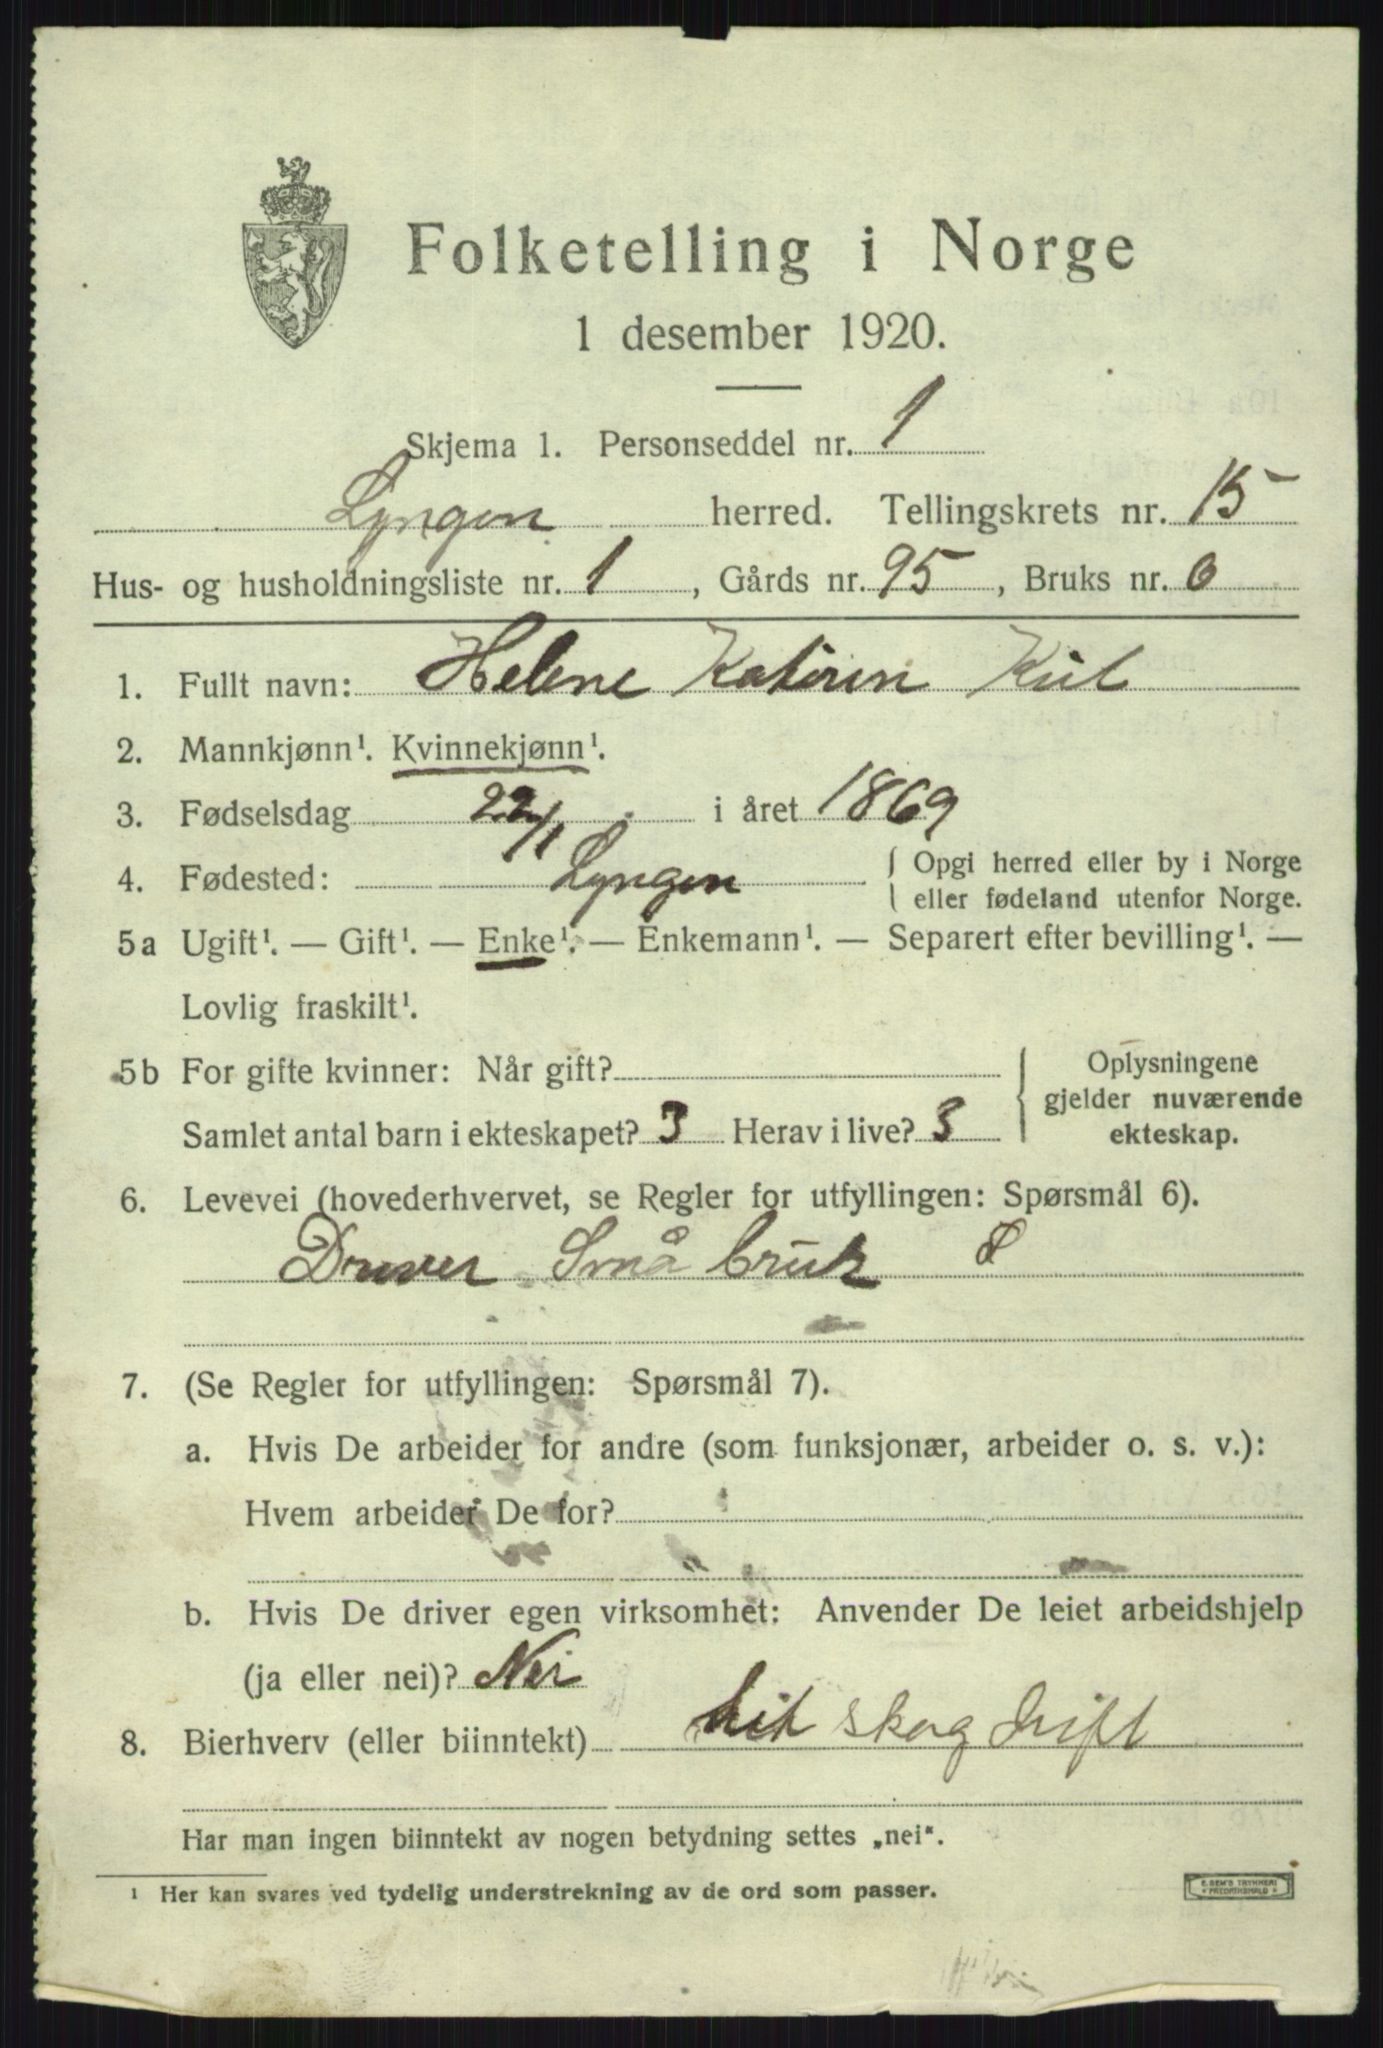 Folketelling i Norge
1 desember 1920.
Skjema 1. Personseddel nr. 1
Lyngen herred. Tellingskrets nr. 15
Hus- og husholdningsliste nr. 1, Gårds nr. 95, Bruks nr. 6
1. Fullt navn: Helene Katrin
2. Mannkjønn¹. Kvinnekjønn¹.
3. Fødselsdag 22/1 i året 1869
4. Fødested: Lyngen { Opgi herred eller by i Norge
eller fødeland utenfor Norge.
5a Ugift¹. — Gift¹. — Enke¹. — Enkemann¹. — Separert efter bevilling¹. —
Lovlig fraskilt¹.
5b For gifte kvinner: Når gift? { Oplysningene
gjelder nuværende
Samlet antal barn i ekteskapet? 3 Herav i live? 3 ekteskap.
6. Levevei (hovederhvervet, se Regler for utfyllingen: Spørsmål 6).
Driver Små bruk
7. (Se Regler for utfyllingen: Spørsmål 7).
a. Hvis De arbeider for andre (som funksjonær, arbeider o. s. v.):
Hvem arbeider De for?
"
b. Hvis De driver egen virksomhet: Anvender De leiet arbeidshjelp
(ja eller nei)? Nei
8. Bierhverv (eller biinntekt) lit skog drift
Har man ingen biinntekt av nogen betydning settes „nei".
¹ Her kan svares ved tydelig understrekning av de ord som passer.
E. SEM'S TRYKKERI
FREDRIKSHALD